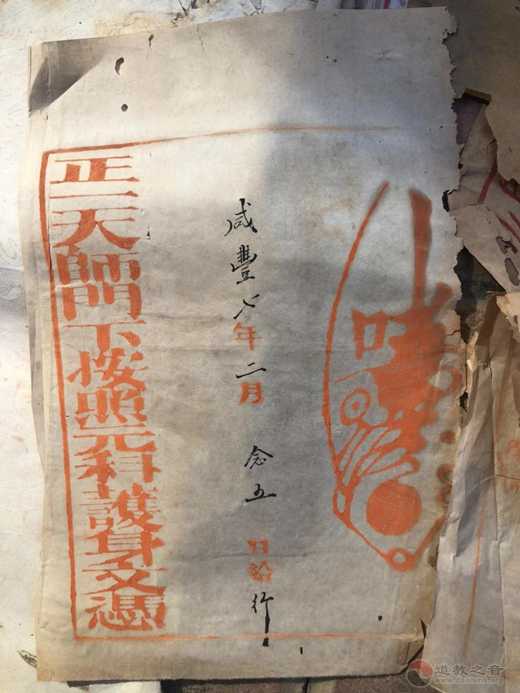 咸豐七年二月念五日給行
正一天師門下按照元科護身文憑
道教之音